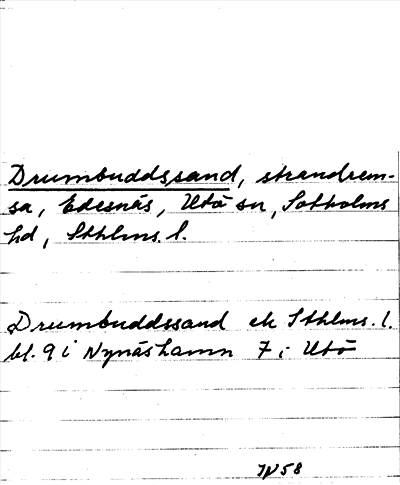 Drumbuddssand, strandrem-
sa, Edesnäs, Utö sn, Sotholms
hd, Sthlms. l.
Drumbuddssand ek Sthlms. l.
bl. 9 i Nynäshamn 7 i Utö
58